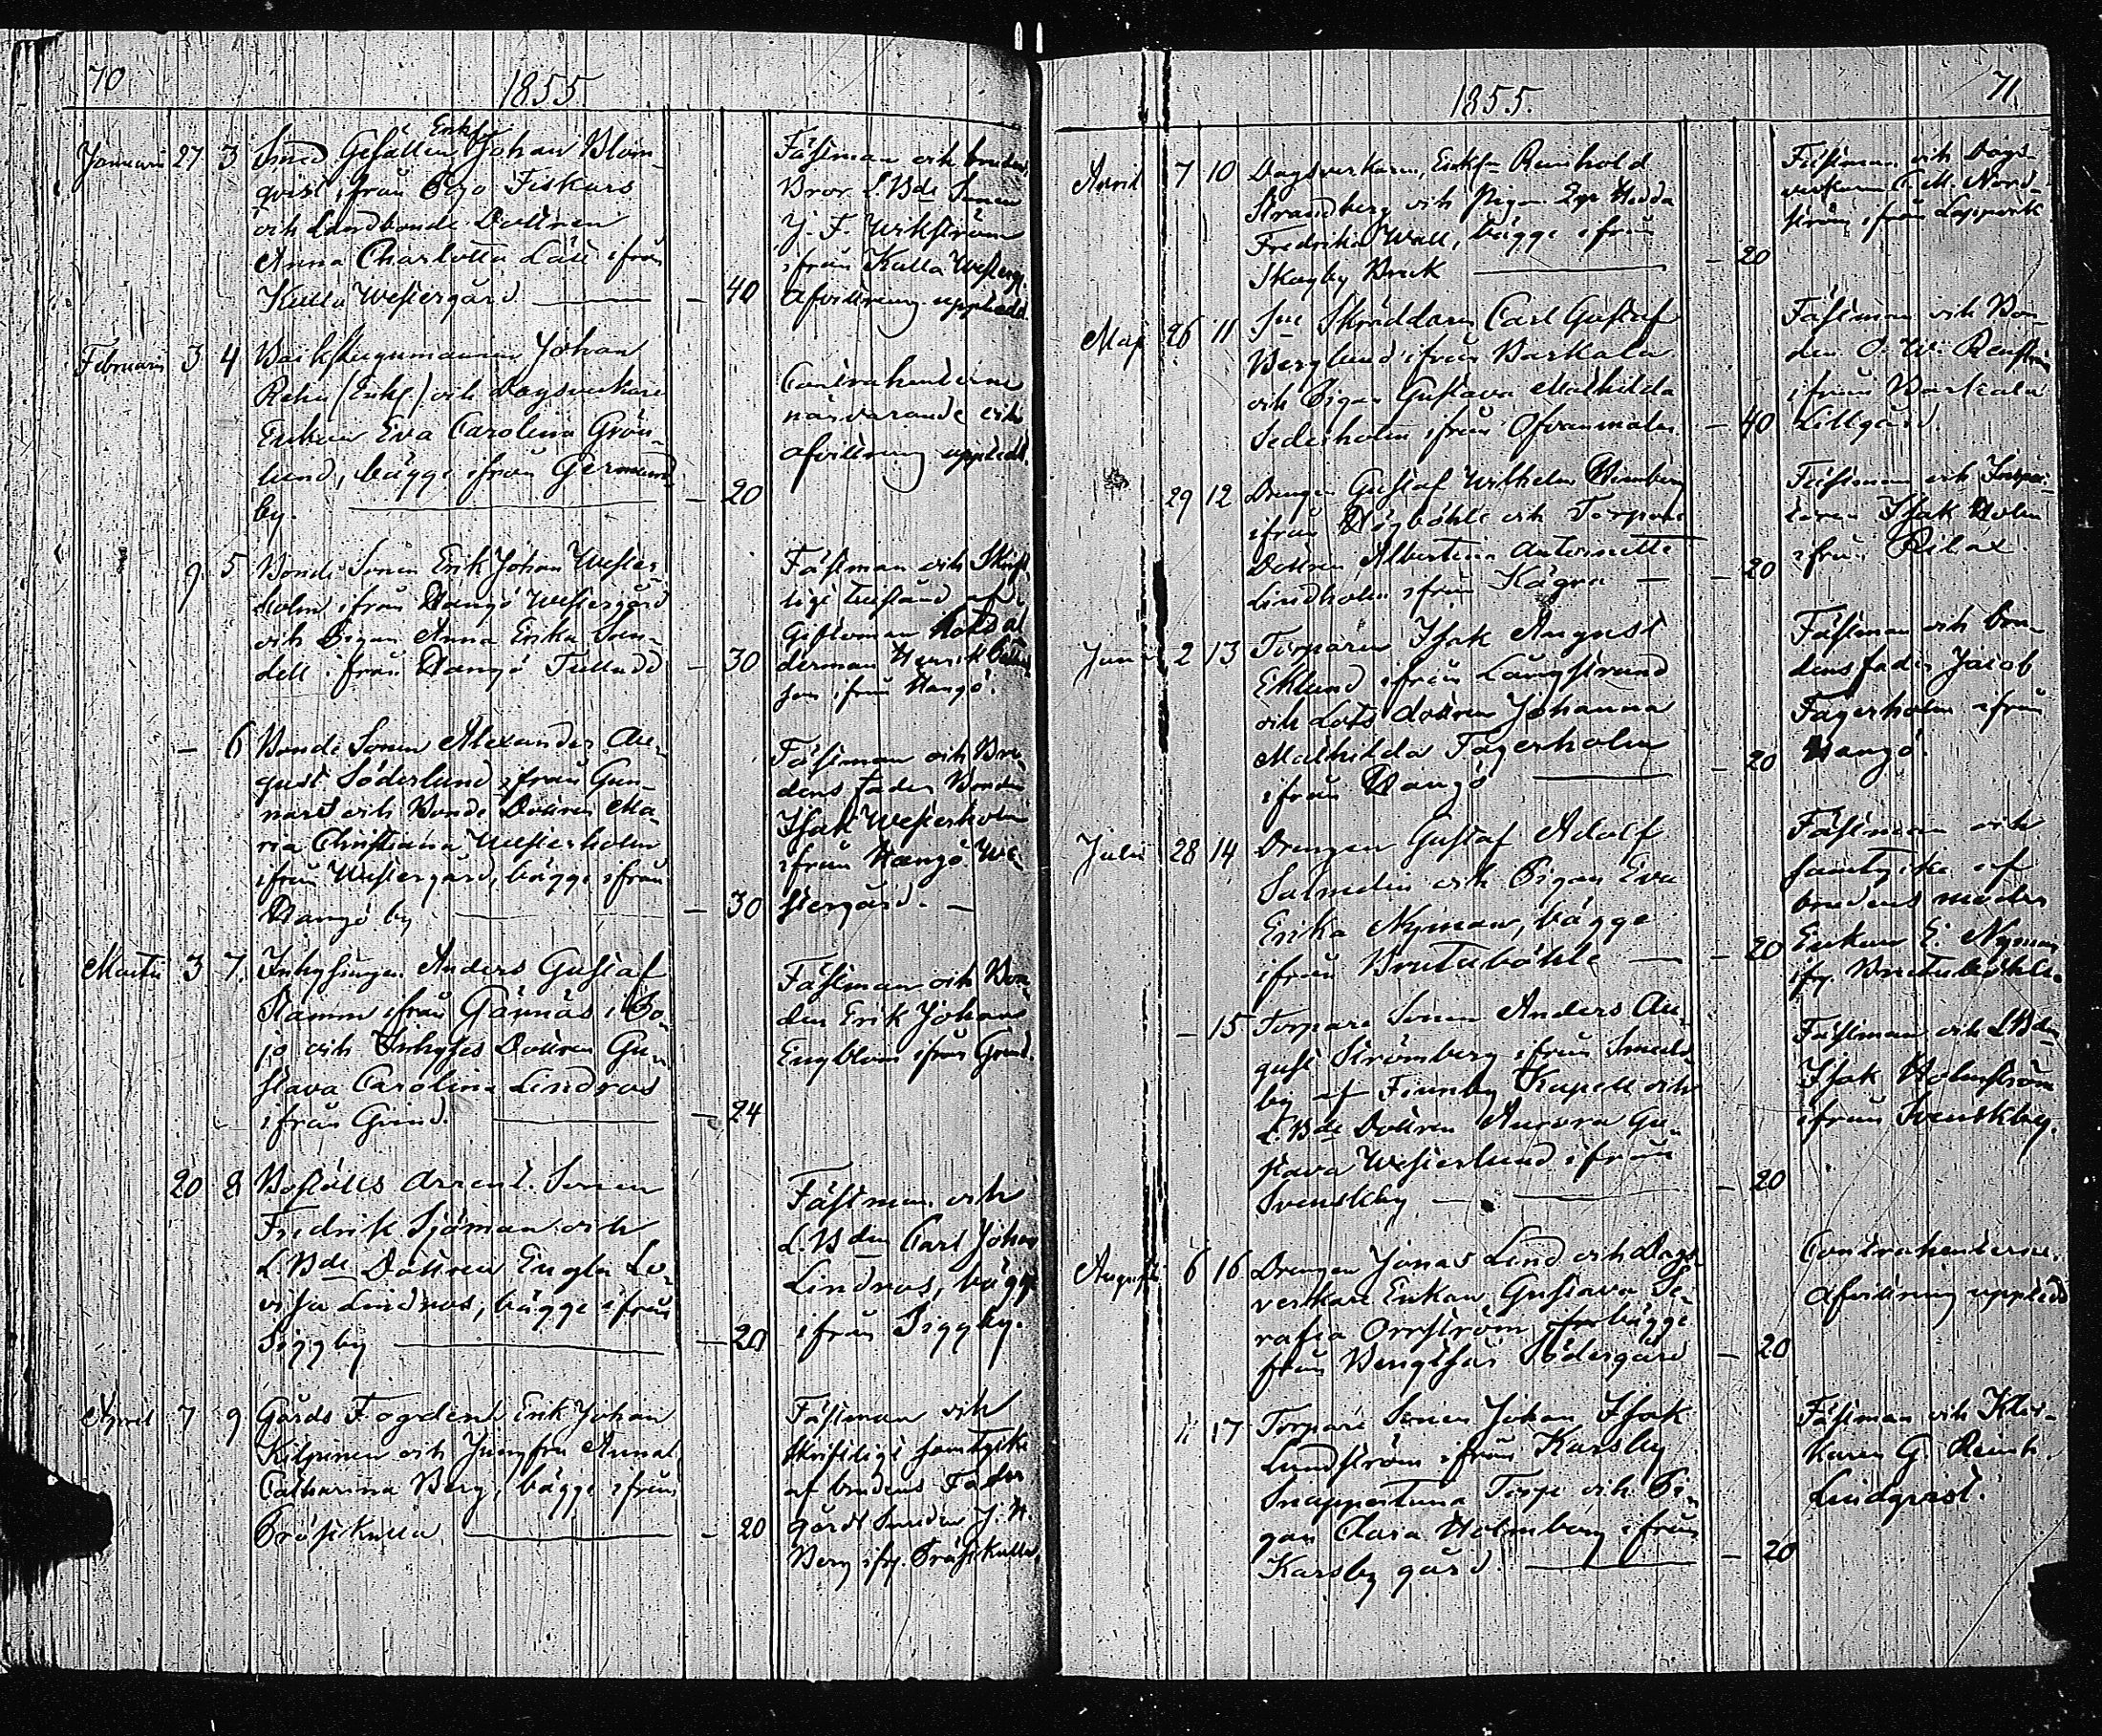 70
1855
Januarii 27 3 Smed Gesällen Enkl. Johan Blom-
qvist ifrån Pojo Fiskars
och Landbonde Dottren
Anna Charlotta Läu ifrån
Kulla Westergård — 40
Fästman och brudens
Bror L.Bde Sonen
J. F. Wikström
ifrån Kulla Westerg.
Afvittring uppledd.
Februarii 3 4 Backstugumannen Johan
Rehn (Enkl.) och Dagsverkare
Enkan Eva Carolina Grön-
lund, bägge ifrån Germund-
by. — 20
Contrahenterne
närvarande och
afvittring uppledd.
9 5 Bonde Sonen Erik Johan Wester-
holm ifrån Hangö Westergård
och Pigan Anna Erika Sun-
dell ifrån Hangö Tulludd — 30
Fästman och Skrift-
ligt tillstånd af
Giftoman Lots ål
derman Henrik
son ifrån Hangö.
— 6 Bonde Sonen Alexander Au-
gust Söderlund ifrån Gun-
nars och Bonde Dottren Ma-
ria Christiana Westerholm
ifrån Westergård, bägge ifrån
Hangö by — 30
Fästman och Bru-
dens fader Bonden
Isak Westerholm
ifrån Hangö We-
stergård. —
Martii 3 7. Inhysingen Anders Gustaf
Stamm ifrån Gärnäs i Po-
jo och Inhyses Dottren Gu-
stava Carolina Lindros
ifrån Grind. — 24
Fästman och Bon-
den Erik Johan
Engblom ifrån Grind.
20 8 Boställs Arrend. Sonen
Fredrik Sjöman och
L.Bde Dottren Engla Lo-
visa Lindros, bägge ifrån
Siggby — 20
Fästman och
L.Bden Carl Johan
Lindros, bägge
ifrån Siggby.
April 7 9 Gårds Fogden Erik Johan
Kilpinen och Jungfru Anna
Catharina Berg, bägge ifrån
Prästkulla — 20
Fästman och
skriftligt samtycke
af brudens Fader
gårds Smeden J. H.
Berg ifr. Prästkulla.
71
1855.
April 7 10 Dagsverkaren, Enkl. Reinhold
Strandberg och Pigan Hedda
Fredrika Wall, bägge ifrån
Skogby Bruk — 20
Fästman och Dags-
verkaren C. M. Nord-
ström ifrån Lappvik
Maji 26 11 Sne Skräddaren Carl Gustaf
Berglund ifrån Backala
och Pigan Gustava Mathilda
Sederholm ifrån Ofvanmalm — 40
Fästman och Bon-
den O. W. Renström
ifrån Backala
Lillgård.
29 12 Drengen Gustaf Wilhelm Wimberg
ifrån Högböhle och Torpare
Dottren Albertina Antoinette
Lindholm ifrån Kägra — 20
Fästman och Inspec-
toren Isak Holm
ifrån Rilax.
Juni 2 13 Torparen Isak August
Eklund ifrån Långstrand
och Lots dottren Johanna
Mathilda Fagerholm
ifrån Hangö — 20
Fästman och bru-
dens fader Jacob
Fagerholm ifrån
Hangö.
Julii 28 14 Drengen Gustaf Adolf
Salmelin och Pigan Eva
Erika Nyman, bägge
ifrån Brutuböhle — 20
Fästman och
samtycke af
brudens moder
Enkan E. Nyman
ifr. Brutuböhle.
— 15 Torpare Sonen Anders Au-
gust Strömberg ifrån Smeds-
by af Finnby Kapell och
L.Bde Dottren Aurora Gu-
stava Westerlund ifrån
Svenskby — 20
Fästman och LBden
Isak Holmström
ifrån Svenskby.
Augusti 6 16 Drengen Jonas Lind och Dags-
verkare Enkan Gustava Se-
rafia Orrström bägge
från Bengtsår Södergård — 20
Contrahenterne.
Afvittring uppledd
11 17 Torpare Sonen Johan Isak
Lundström ifrån Karsby
Snappertuna Torp och Pi-
gan Clara Holmberg ifrån
Karsby gård. — 20
Fästman och Kloc-
karen G. Reinh.
Lindqvist.